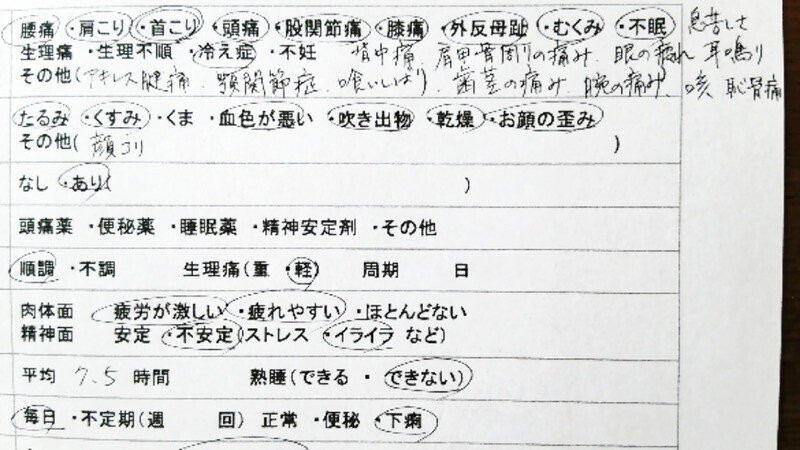 腰痛・肩こり・首こり・頭痛・股関節痛・膝痛・外反母趾・むくみ・不眠 息苦しさ
生理痛・生理不順・冷え症・不妊 背中痛、肩甲骨周りの痛み、眼の疲れ 耳鳴り
その他(アキレス腱痛、顎関節症、喰いしばり、歯茎の痛み、腕の痛み、咳 恥骨痛
たるみ・くすみ・くま・血色が悪い・吹き出物・乾燥・お顔の歪み
その他(顔コリ )
なし・あり( )
頭痛薬・便秘薬・睡眠薬・精神安定剤・その他
順調・不調 生理痛(重・軽) 周期 日
肉体面 疲労が激しい・疲れやすい・ほとんどない
精神面 安定・不安定(ストレス・イライラ など)
平均 7.5 時間 熟睡(できる・できない)
毎日・不定期(週 回) 正常・便秘・下痢